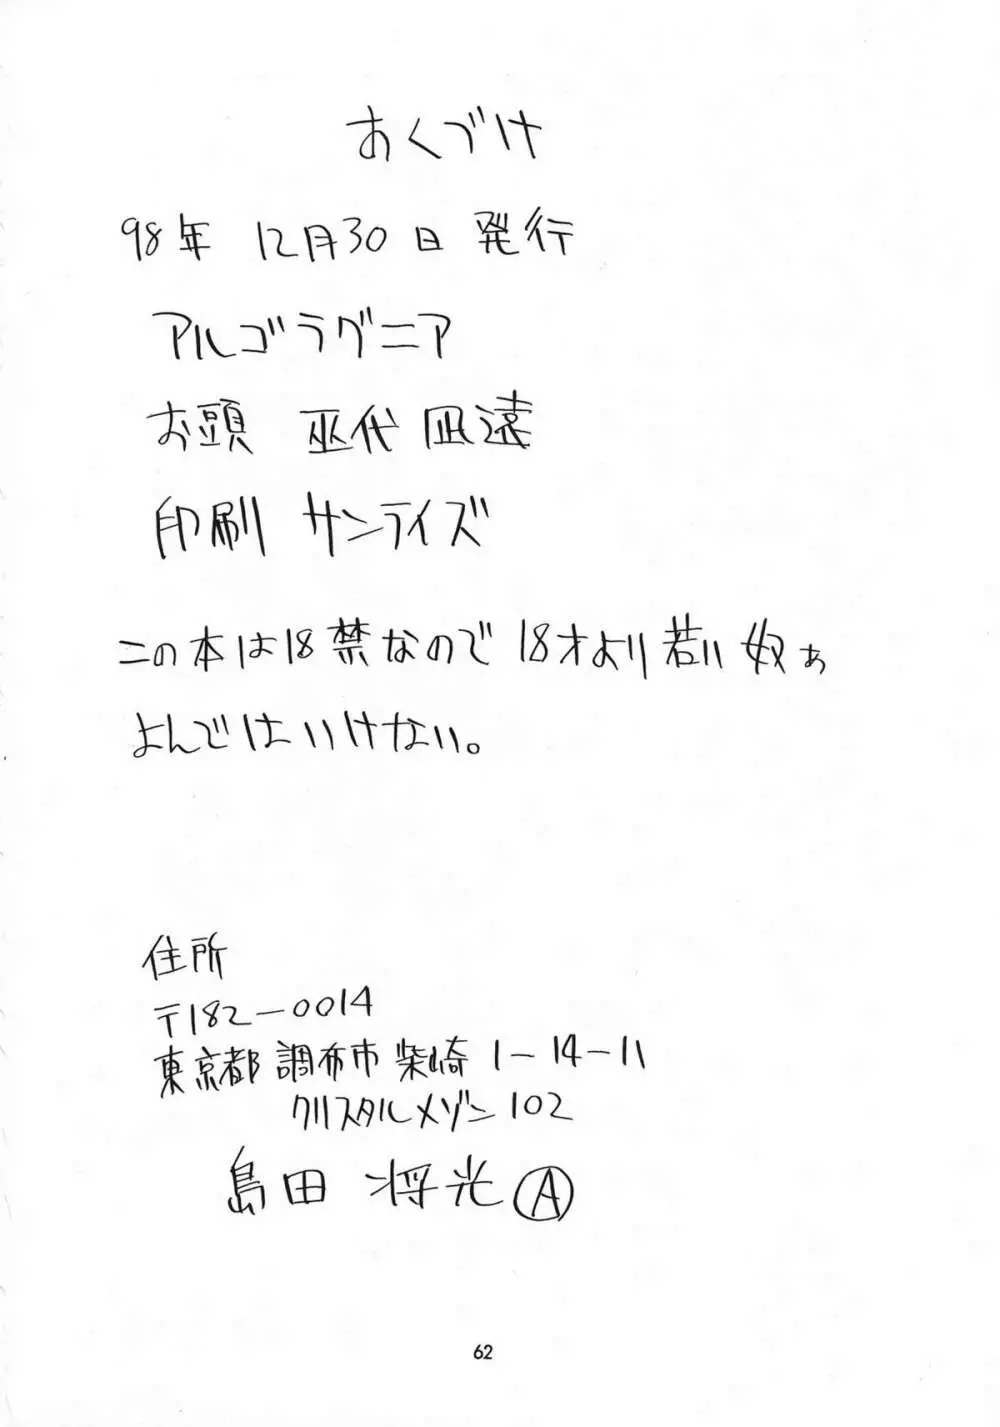 おくづけ
98年 12月30日 発行
アルゴラグニア
お頭 巫代凪遠
印刷 サンライズ
この本は18禁なので18才より若い奴ぁ
よんではいけない。
住所
〒182-0014
東京都調布市柴崎1-14-11
クリスタルメゾン102
島田 将光 Ⓐ
62